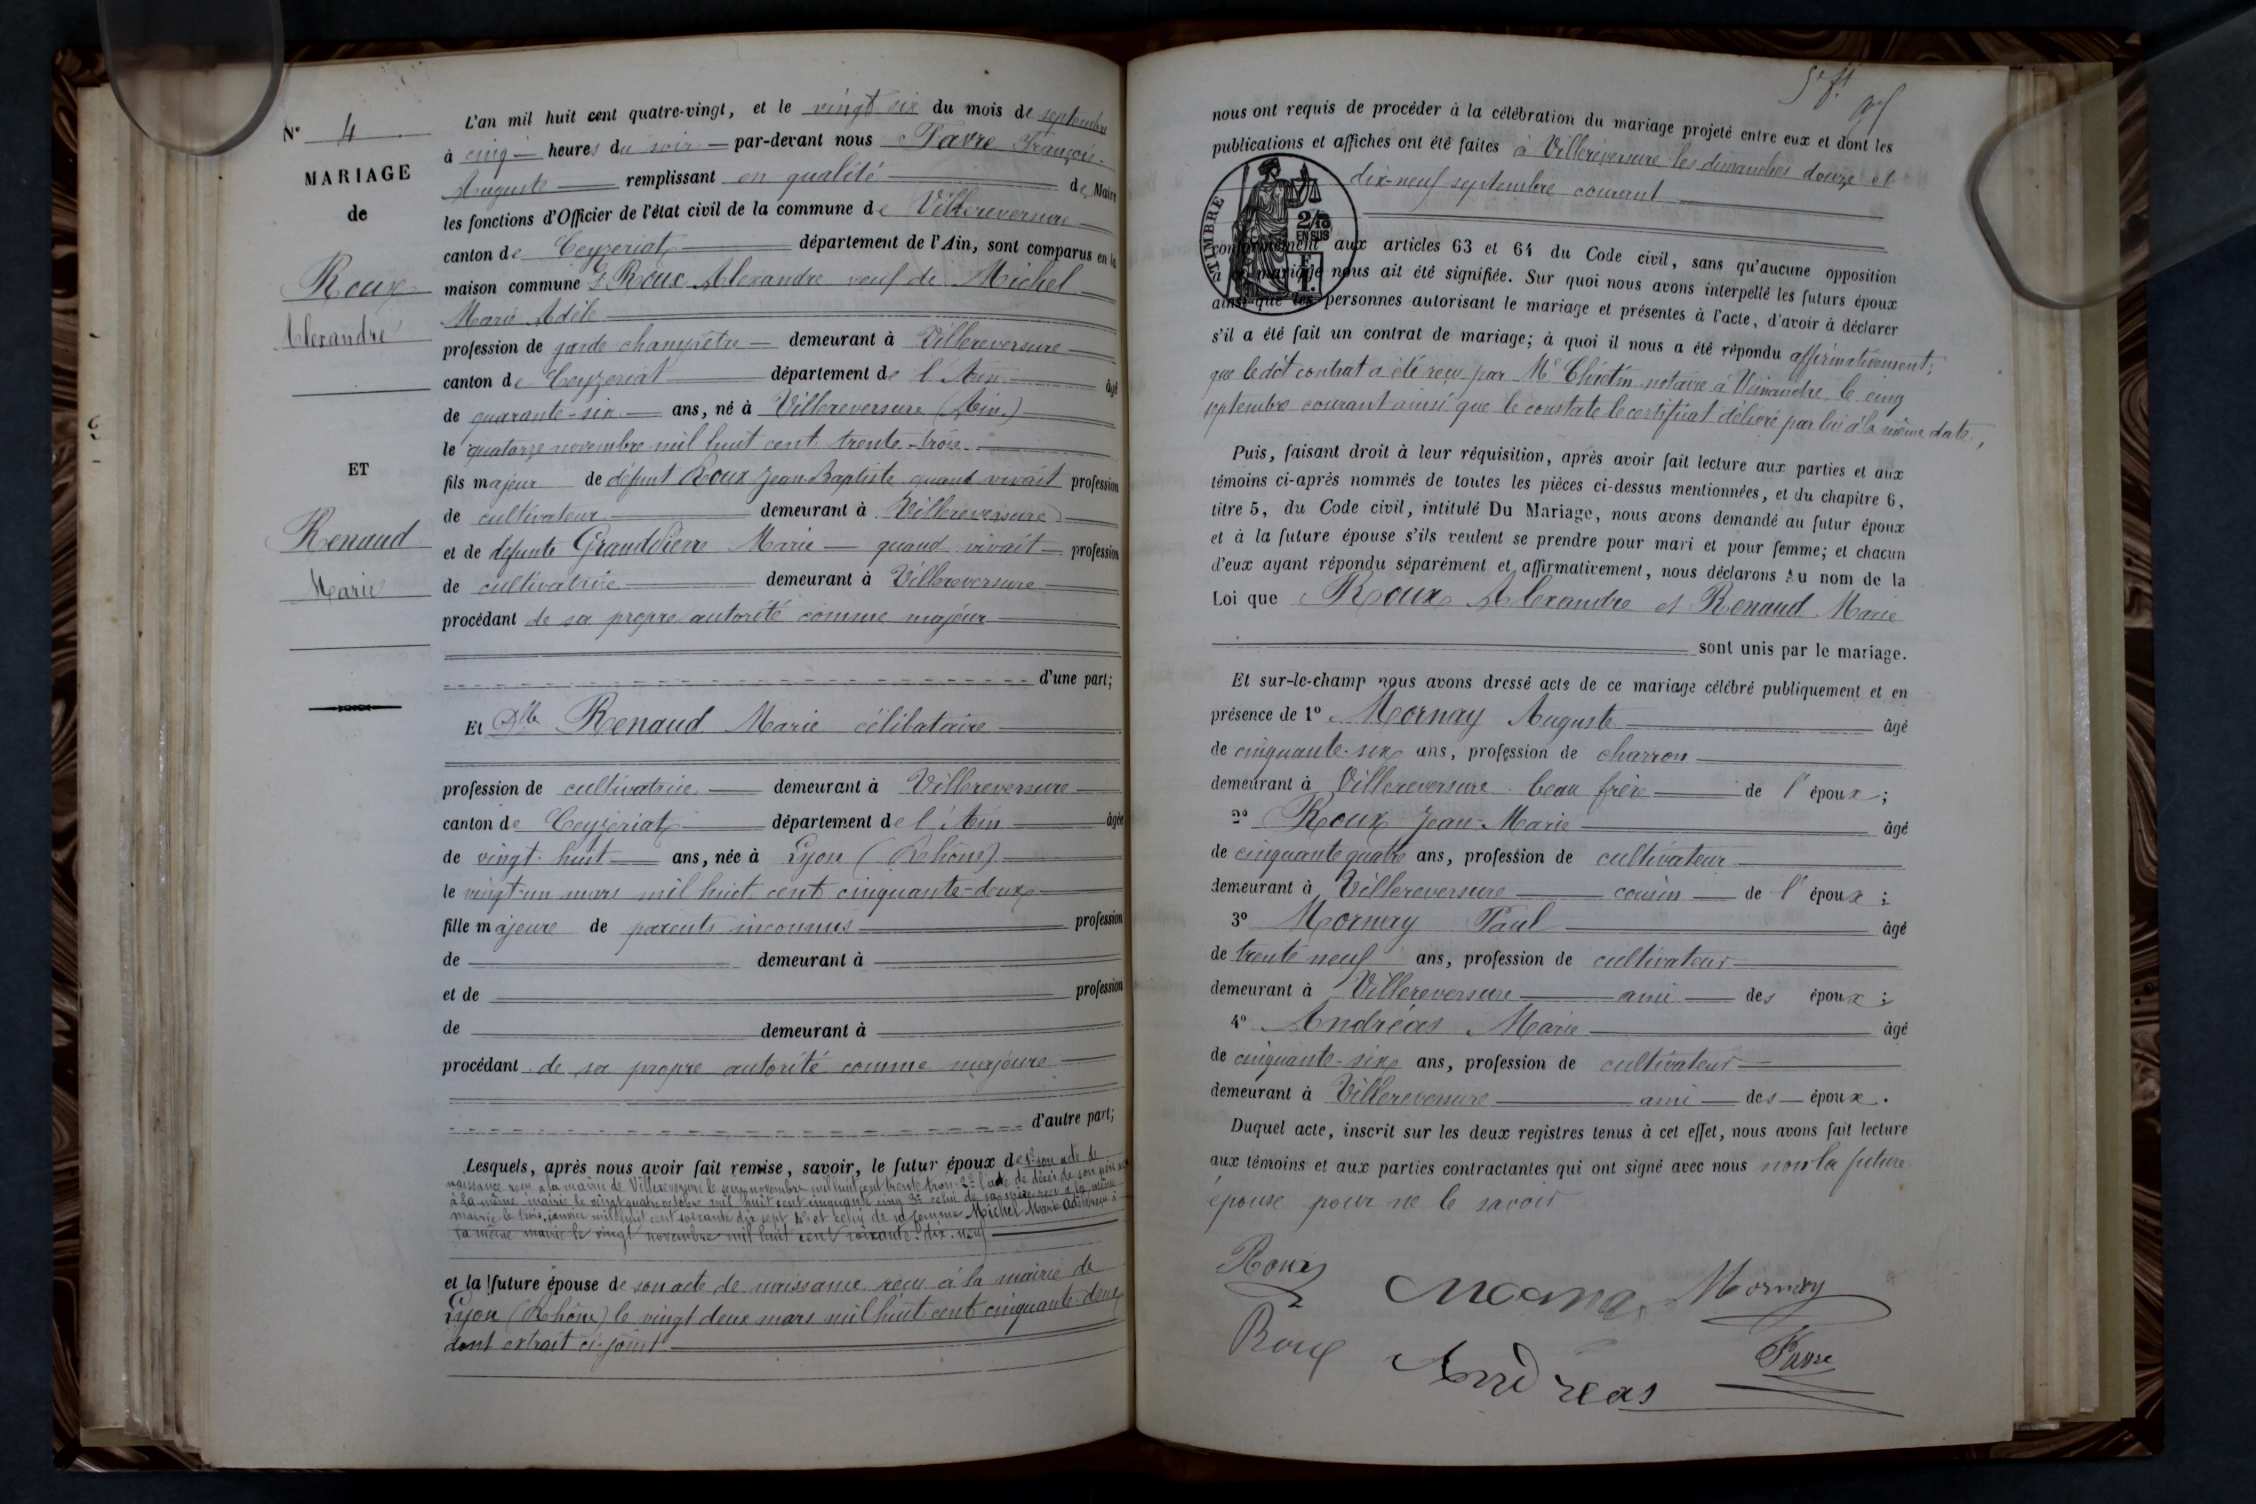 N° 4
MARIAGE
de
Roux
Alexandre
ET
Renaud
Marie
L'an mil huit cent quatre-vingt, et le vingt six du mois de septembre
à cinq heures du soir par-devant nous Favre François
Auguste remplissant en qualité de Maire
les fonctions d'Officier de l'état civil de la commune de Villereversure
canton de Ceyzeriat département de l'Ain, sont comparus en la
maison commune Roux Alexandre veuf de Michel
Marie Adèle
profession de garde champêtre demeurant à Villereversure
canton de Ceyzeriat département de l'Ain âgé
de quarante-six ans, né à Villereversure (Ain)
le quatorze novembre mil huit cent trente-trois
fils majeur de défunt Roux Jean Baptiste quand vivait profession
de cultivateur demeurant à Villereversure
et de défunte Grandpierre Marie quand vivait profession
de cultivatrice demeurant à Villereversure
procédant de sa propre autorité comme majeur
d'une part;
Et Dlle Renaud Marie célibataire
profession de cultivatrice demeurant à Villereversure
canton de Ceyzeriat département de l'Ain âgée
de vingt-huit ans, née à Lyon (Rhône)
le vingt-un mars mil huit cent cinquante-deux
fille majeure de parents inconnus profession
de demeurant à
et de profession
de demeurant à
procédant de sa propre autorité comme majeure
d'autre part;
Lesquels, après nous avoir fait remise, savoir, le futur époux de 1° son acte de
naissance reçu à la mairie de Villereversure le novembre mil huit cent trente trois 2° l'acte de décès de son père
à la même mairie le vingt quatre octobre mil huit cent cinquante cinq 3° celui de sa mère reçu à la même
mairie le trois janvier mil huit cent soixante dix sept 4° et celui de sa femme Michel Marie Adèle reçu à
la même mairie le vingt novembre mil huit cent soixante-dix-neuf
et la future épouse de son acte de naissance reçu à la mairie de
Lyon (Rhône) le vingt deux mars mil huit cent cinquante-deux
dont extrait ci-joint
nous ont requis de procéder à la célébration du mariage projeté entre eux et dont les
publications et affiches ont été faites à Villereversure les dimanches douze et
dix-neuf septembre courant
TIMBRE
2/10
EN SUS
conformément aux articles 63 et 64 du Code civil, sans qu'aucune opposition
mariage nous ait été signifiée. Sur quoi nous avons interpellé les futurs époux
ainsi que les personnes autorisant le mariage et présentes à l'acte, d'avoir à déclarer
s'il a été fait un contrat de mariage; à quoi il nous a été répondu affirmativement;
que le dit contrat a été reçu par Me notaire à le cinq
septembre courant ainsi que le constate le certificat délivré par lui à la même date,
Puis, faisant droit à leur réquisition, après avoir fait lecture aux parties et aux
témoins ci-après nommés de toutes les pièces ci-dessus mentionnées, et du chapitre 6,
titre 5, du Code civil, intitulé Du Mariage, nous avons demandé au futur époux
et à la future épouse s'ils veulent se prendre pour mari et pour femme; et chacun
d'eux ayant répondu séparément et affirmativement, nous déclarons au nom de la
Loi que Roux Alexandre et Renaud Marie
sont unis par le mariage.
Et sur-le-champ nous avons dressé acte de ce mariage célébré publiquement et en
présence de 1° Mornay Auguste âgé
de cinquante-six ans, profession de charron
demeurant à Villereversure beau frère de l'époux;
2° Roux Jean-Marie âgé
de cinquante quatre ans, profession de cultivateur
demeurant à Villereversure cousin de l'époux;
3° Mornay Paul âgé
de trente neuf ans, profession de cultivateur
demeurant à Villereversure ami des époux;
4° Andréas Marie âgé
de cinquante-six ans, profession de cultivateur
demeurant à Villereversure ami des époux.
Duquel acte, inscrit sur les deux registres tenus à cet effet, nous avons fait lecture
aux témoins et aux parties contractantes qui ont signé avec nous non la future
épouse pour ne le savoir
Roux
Mornay
Roux
Andréas
Favre